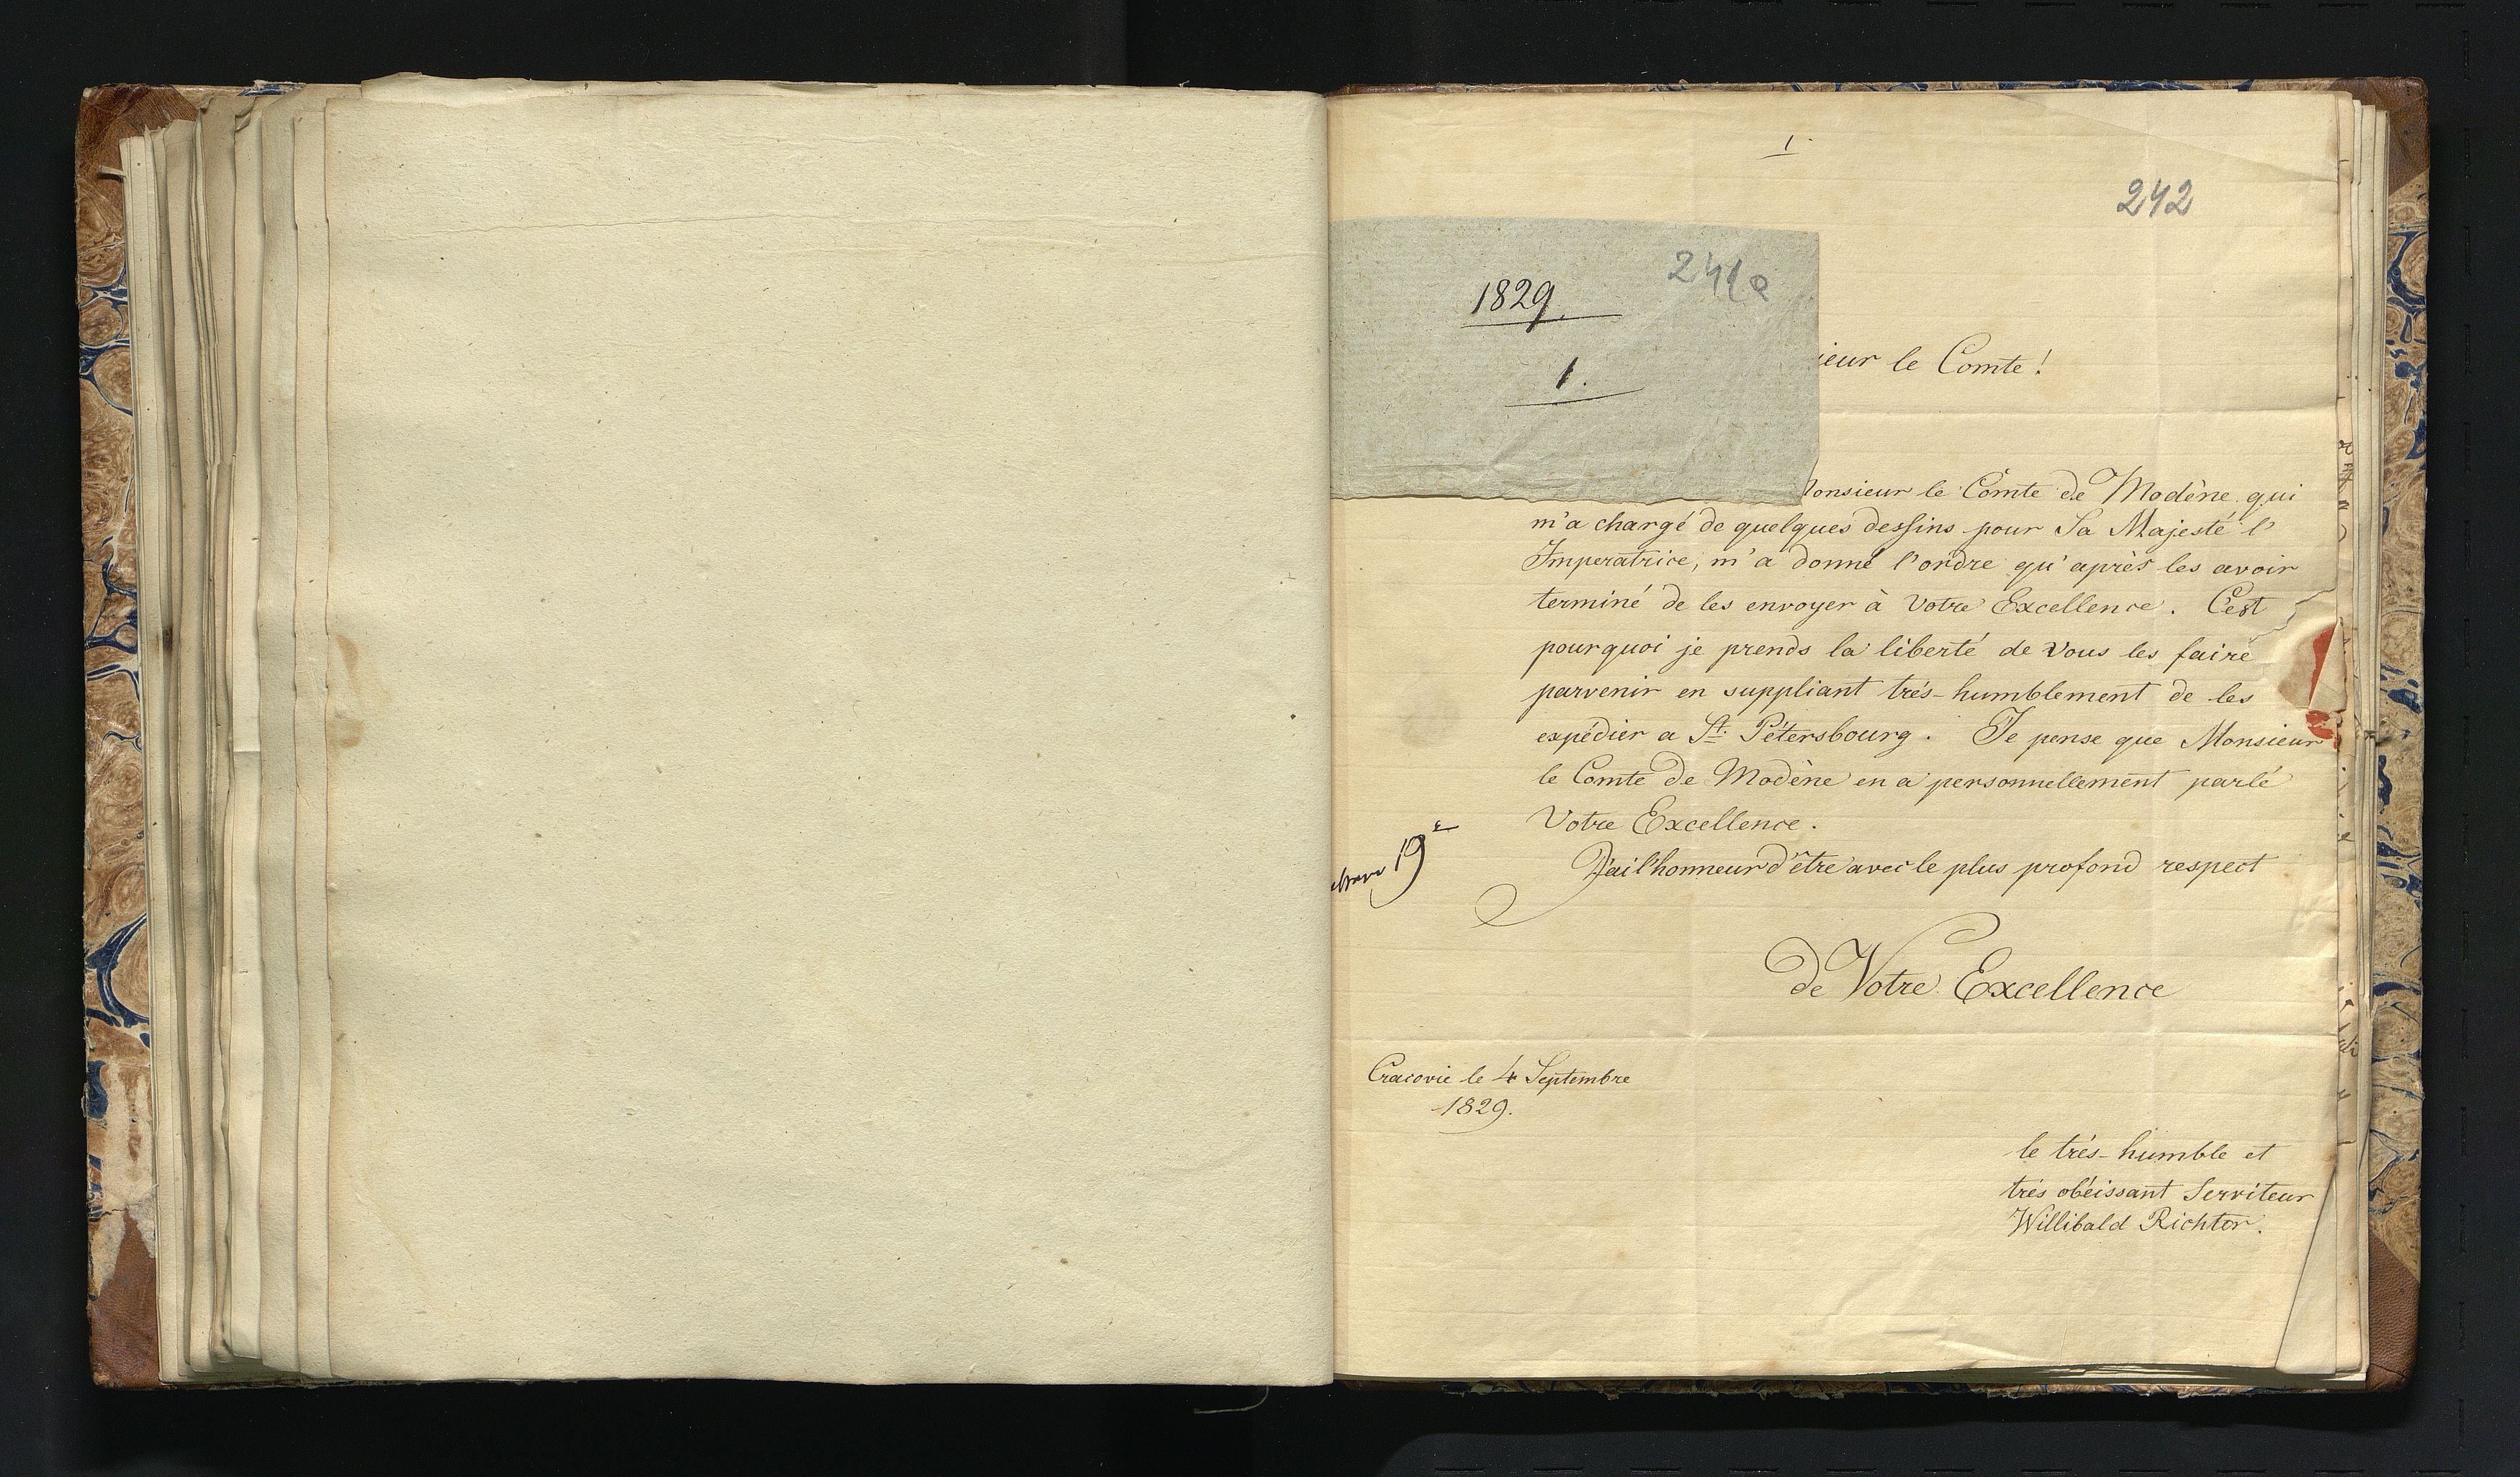 1.
242
1829.
1.
ieur le Comte!
Monsieur le Comte de Modène qui
m'a chargé de quelques dessins pour Sa Majesté l'
Imperatrice, m'a donné l'ordre qu'après les avoir
terminé de les envoyer à Votre Excellence. C'est
pourquoi je prends la liberté de Vous les faire
parvenir en suppliant trés-humblement de les
expédier a St. Pétersbourg. Je pense que Monsieur
le Comte de Modène en a personnellement parlé
Votre Excellence.
19
J'ai l'honneur d'être avec le plus profond respect
de Votre Excellence
Cracovie le 4 Septembre
1829.
le trés-humble et
trés obéissant Serviteur
Willibald Richter.